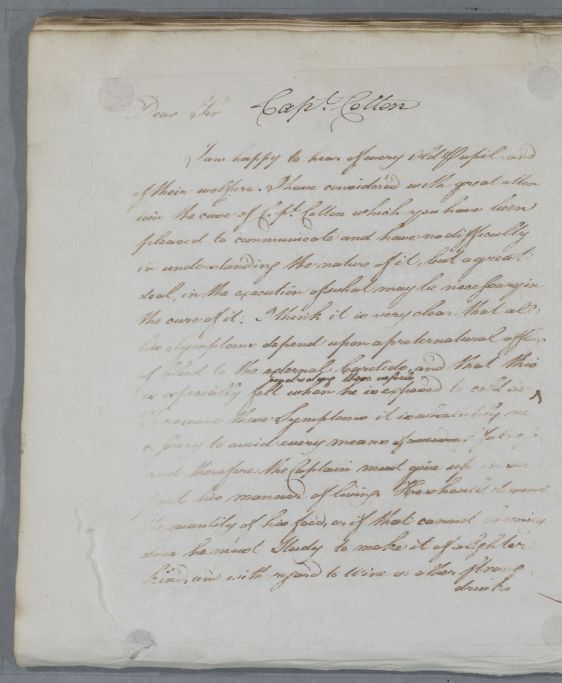 Dear Sir Capt. Cotton
I am happy to hear of every old Pupil and
of their welfare. I have considered with great atten
tion the case of Capt. Cotton which you have been
pleased to communicate and have no difficulty
in understanding the nature of it, but a great
deal, in the execution of what may be necessary in
the cure of it. I think it is very clear that all
his Symptoms depend upon a preternatural
of blood to the external Carotids, and that this
is especially felt when he is exposed to cold
these Symptoms it is absolutely ne
cessary to avoid every means of
and therefore the Captain must give up
his manner of living. He should
the quantity of his food, or if that cannot
done he must Study to make it of a lighter
kind, and with regard to Wine or other Strong
drinks